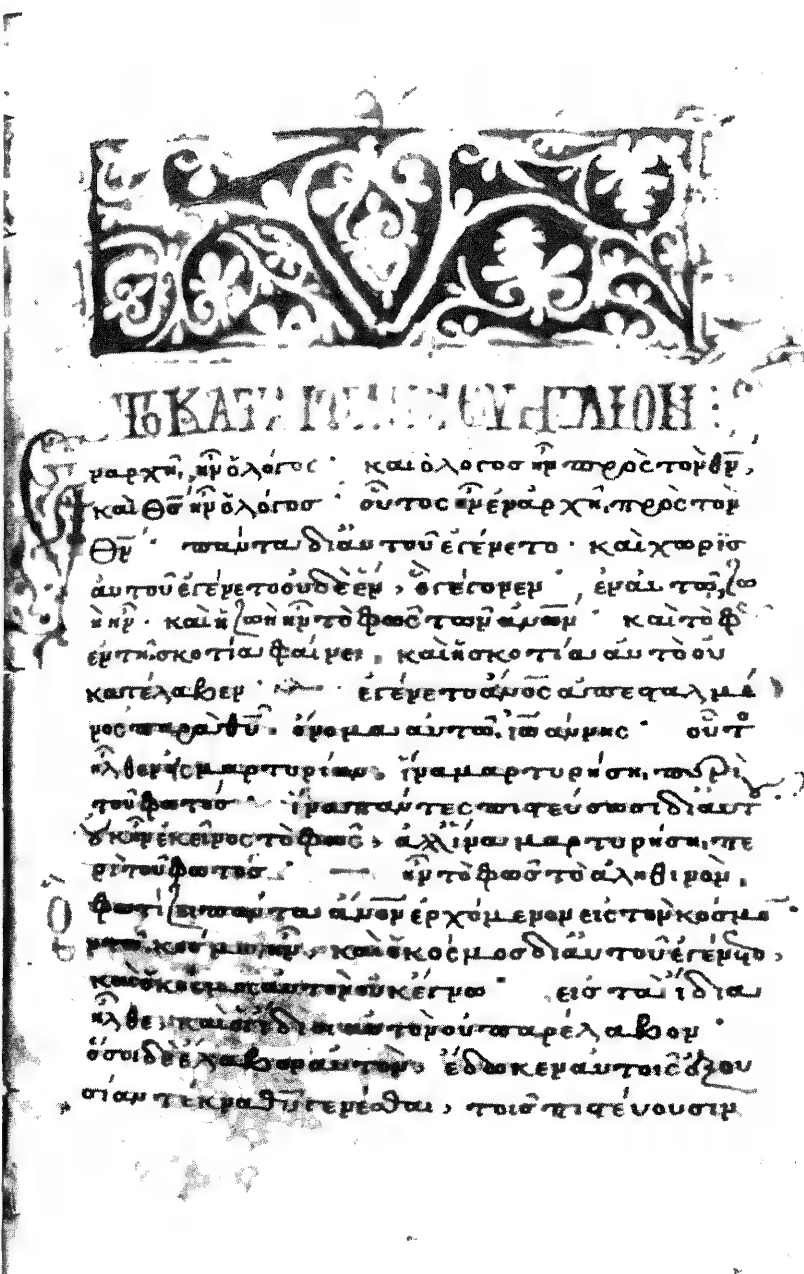 ΤΟ ΚΑΤΑ ΙΩΑΝΝΗΝ ΕΥΑΓΓΕΛΙΟΝ :
Ἐν ἀρχῆ, ἦν ὁ λόγος · καὶ ὁ λόγος ἦν πρὸς τὸν θν̅,
καὶ θσ̅ ἦν ὁ λόγος · οὗτος ἦν ἐν ἀρχῆ, πρὸς τὸν
θν̅ · πάντα δι' αὐτοῦ ἐγένετο · καὶ χωρὶσ
αὐτοῦ ἐγένετο οὐδὲ ἕν, ὃ γέγονεν · ἐν αὐτῶ, ζω
ὴ ἦν · καὶ ἡ ζωὴ ἦν τὸ φῶς τῶν ἀνω̅ν · καὶ τὸ φῶς
ἐν τῆ σκοτία φαίνει, καὶ ἡ σκοτία αὐτὸ οὐ
κατέλαβεν · ἐγένετο ἀνο̅ς ἀπεσταλμέ
νος παρὰ θυ̅ · ὄνομα αὐτῶ, ἰω̅άννης · οὗτος
ἦλθεν εἰς μαρτυρίαν, ἵνα μαρτυρήση, περὶ
τοῦ φωτός · ἵνα πάντες πιστεύσωσι δι' αὐτ
οὐκ ἦν ἐκεῖνος τὸ φῶς, ἀλλ' ἵνα μαρτυρήση, πε
ρὶ τοῦ φωτός · ἦν τὸ φῶς τὸ ἀληθινὸν,
ὃ φωτίζει πάντα ἀνο̅ν ἐρχόμενον εἰς τὸν κόσμο ·
ἐν τῶ κόσμω ἦν, καὶ ὁ κόσμος δι' αὐτοῦ ἐγένετο,
καὶ ὁ κόσμος αὐτὸν οὐκ ἔγνω · εἰς τὰ ἴδια
ἦλθε, καὶ οἱ ἴδιοι αὐτὸν οὐ παρέλαβον ·
ὅσοι δὲ ἔλαβον αὐτὸν, ἔδωκεν αὐτοῖς ἐξου
σίαν τέκνα θυ̅ γενέσθαι, τοῖς πιστεύουσιν